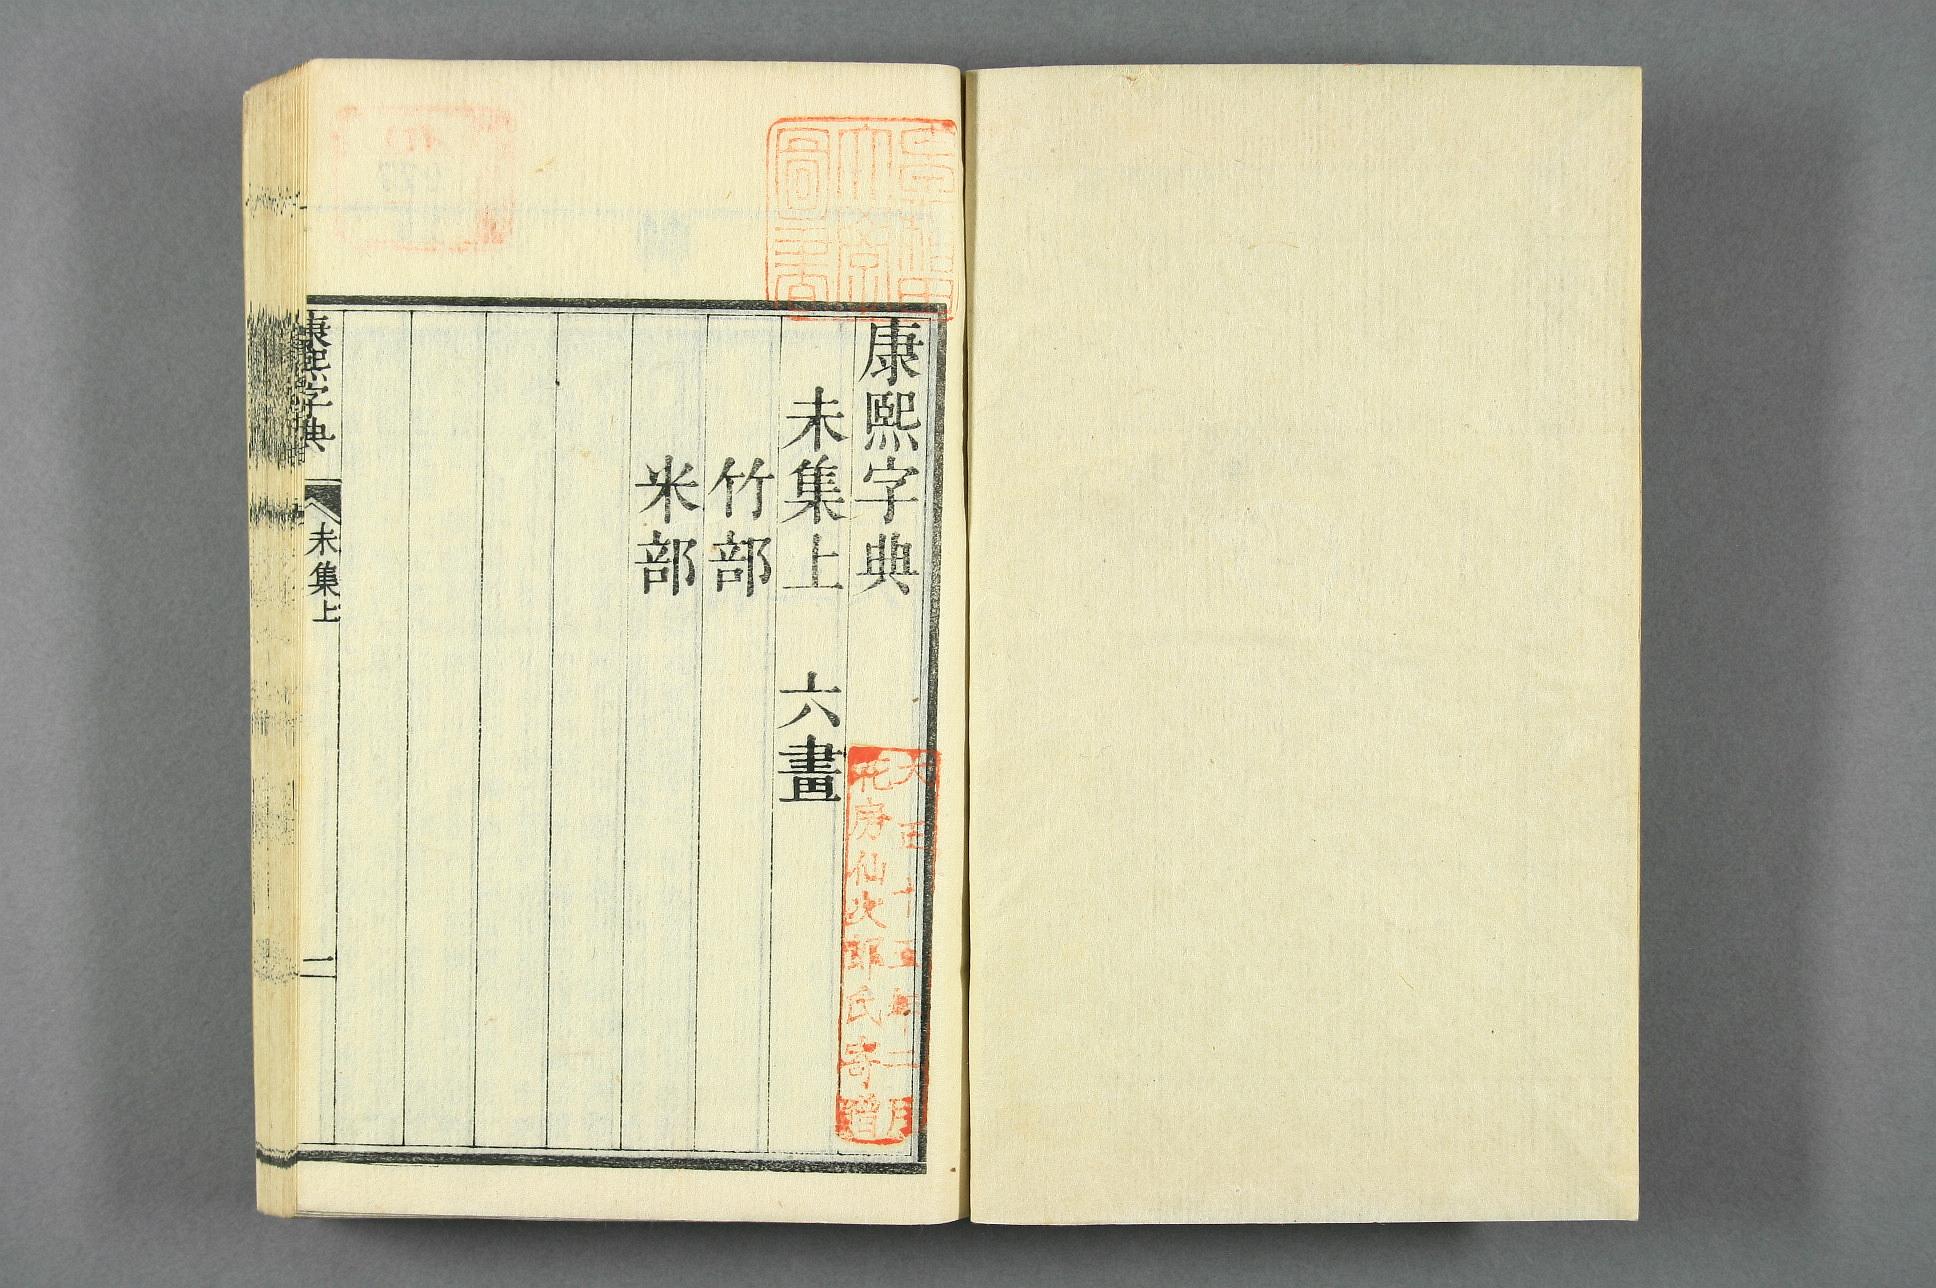 康熙字典
未集上　六畫
竹部
米部
康熙字典
未集上
一
早稲田
大學
圖書
大正十五年二月
花房仙次郎氏寄贈